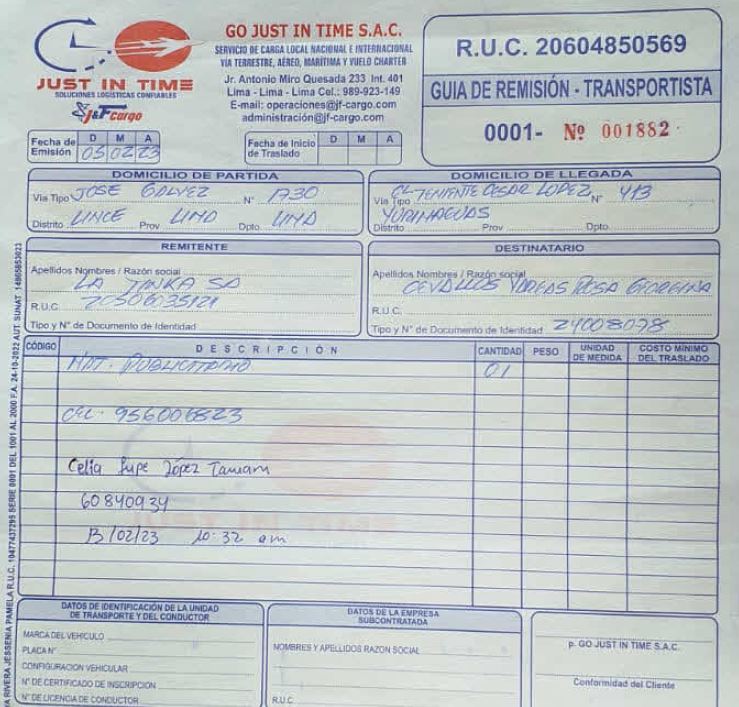 JUST IN TIME
SOLUCIONES LOGÍSTICAS CONFIABLES
J&F Cargo
GO JUST IN TIME S.A.C.
SERVICIO DE CARGA LOCAL NACIONAL E INTERNACIONAL
VÍA TERRESTRE, AÉREO, MARÍTIMA Y VUELO CHARTER
Jr. Antonio Miro Quesada 233 Int. 401
Lima - Lima - Lima Cel.: 989-923-149
E-mail: operaciones@jf-cargo.com
administración@jf-cargo.com
R.U.C. 20604850569
GUIA DE REMISIÓN - TRANSPORTISTA
0001- Nº 001882
Fecha de Emisión D M A
05 02 23
Fecha de Inicio de Traslado D M A
DOMICILIO DE PARTIDA
Via Tipo JOSE GALVEZ N° 1730
Distrito LINCE Prov LIMA Dpto. LIMA
DOMICILIO DE LLEGADA
Via Tipo CL TENIENTE CESAR LOPEZ N° 413
YURIMAGUAS
Distrito Prov Dpto
REMITENTE
Apellidos Nombres / Razón social
LA TINKA SA
R.U.C. 20506035121
Tipo y N° de Documento de Identidad
DESTINATARIO
Apellidos Nombres / Razón social
CEVALLOS VARGAS ROSA GEORGINA
R.U.C.
Tipo y N° de Documento de Identidad 24008078
CÓDIGO DESCRIPCIÓN CANTIDAD PESO UNIDAD DE MEDIDA COSTO MÍNIMO DEL TRASLADO
MAT. PUBLICITARIO 01
CEL. 956006823
Celia Lupe López Tamam
60840934
13/02/23 10:32 am
JUST IN TIME
DATOS DE IDENTIFICACIÓN DE LA UNIDAD DE TRANSPORTE Y DEL CONDUCTOR
MARCA DEL VEHICULO
PLACA N°
CONFIGURACION VEHICULAR
N° DE CERTIFICADO DE INSCRIPCION
N° DE LICENCIA DE CONDUCTOR
DATOS DE LA EMPRESA SUBCONTRATADA
NOMBRES Y APELLIDOS RAZON SOCIAL
R.U.C.
p. GO JUST IN TIME S.A.C.
Conformidad del Cliente
RIVERA JESSENIA PAMELA R.U.C. 10477437295 SERIE 0001 DEL 1001 AL 2000 F.A. 24-10-2022 AUT. SUNAT 14865853023